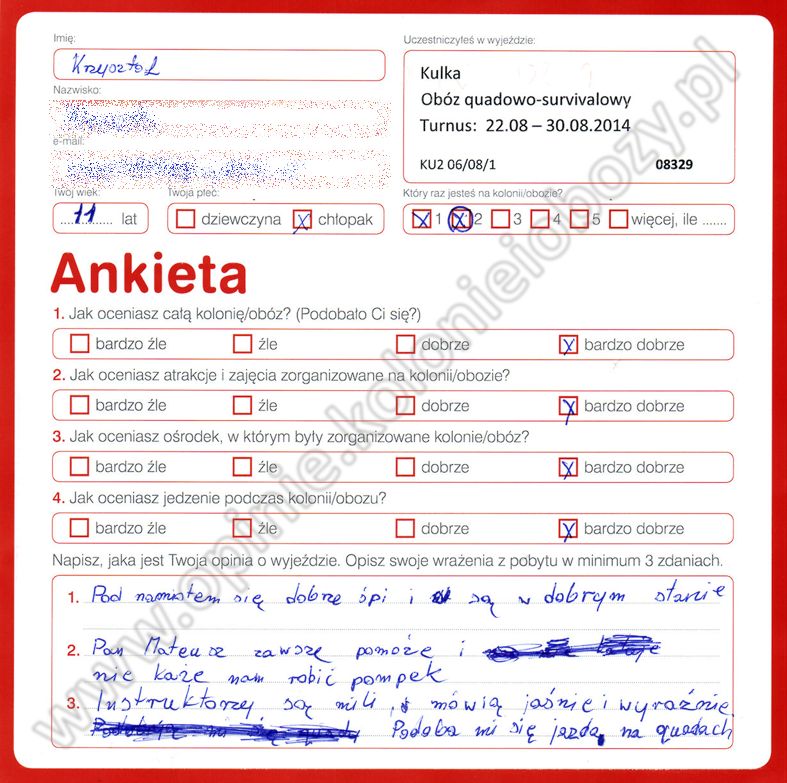 Imię:
Krzysztof
Nazwisko:
e-mail:
Twój wiek:
11 lat
Twoja płeć:
dziewczyna chłopak
Uczestniczyłeś w wyjeździe:
Kulka
Obóz quadowo-survivalowy
Turnus: 22.08 – 30.08.2014
KU2 06/08/1 08329
Który raz jesteś na kolonii/obozie?
1 2 3 4 5 więcej, ile .......
Ankieta
1. Jak oceniasz całą kolonię/obóz? (Podobało Ci się?)
bardzo źle źle dobrze bardzo dobrze
2. Jak oceniasz atrakcje i zajęcia zorganizowane na kolonii/obozie?
bardzo źle źle dobrze bardzo dobrze
3. Jak oceniasz ośrodek, w którym były zorganizowane kolonie/obóz?
bardzo źle źle dobrze bardzo dobrze
4. Jak oceniasz jedzenie podczas kolonii/obozu?
bardzo źle źle dobrze bardzo dobrze
Napisz, jaka jest Twoja opinia o wyjeździe. Opisz swoje wrażenia z pobytu w minimum 3 zdaniach.
1. Pod namiotem się dobrze śpi i są w dobrym stanie
2. Pan Mateusz zawsze pomoże i
nie każe nam robić pompek
3. Instruktorzy są mili, mówią jaśnie i wyraźnie.
Podoba mi się jazda na quadach
www.opinie.kolonieiobozy.pl